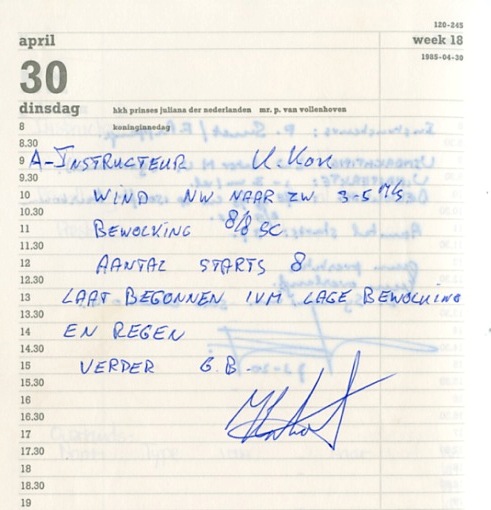 120-245
april
week 18
30
1985-04-30
dinsdag
hkh prinses juliana der nederlanden mr. p. van vollenhoven
8
koninginnedag
8.30
9 A-INSTRUCTEUR K. KOK
9.30
10 WIND NW NAAR ZW 3-5 M/S
10.30
11 BEWOLKING 8/8 SC
11.30
12 AANTAL STARTS 8
12.30
13 LAAT BEGONNEN IVM LAGE BEWOLKING
13.30
14 EN REGEN
14.30
15 VERDER G.B.
15.30
16
16.30
17
17.30
18
18.30
19